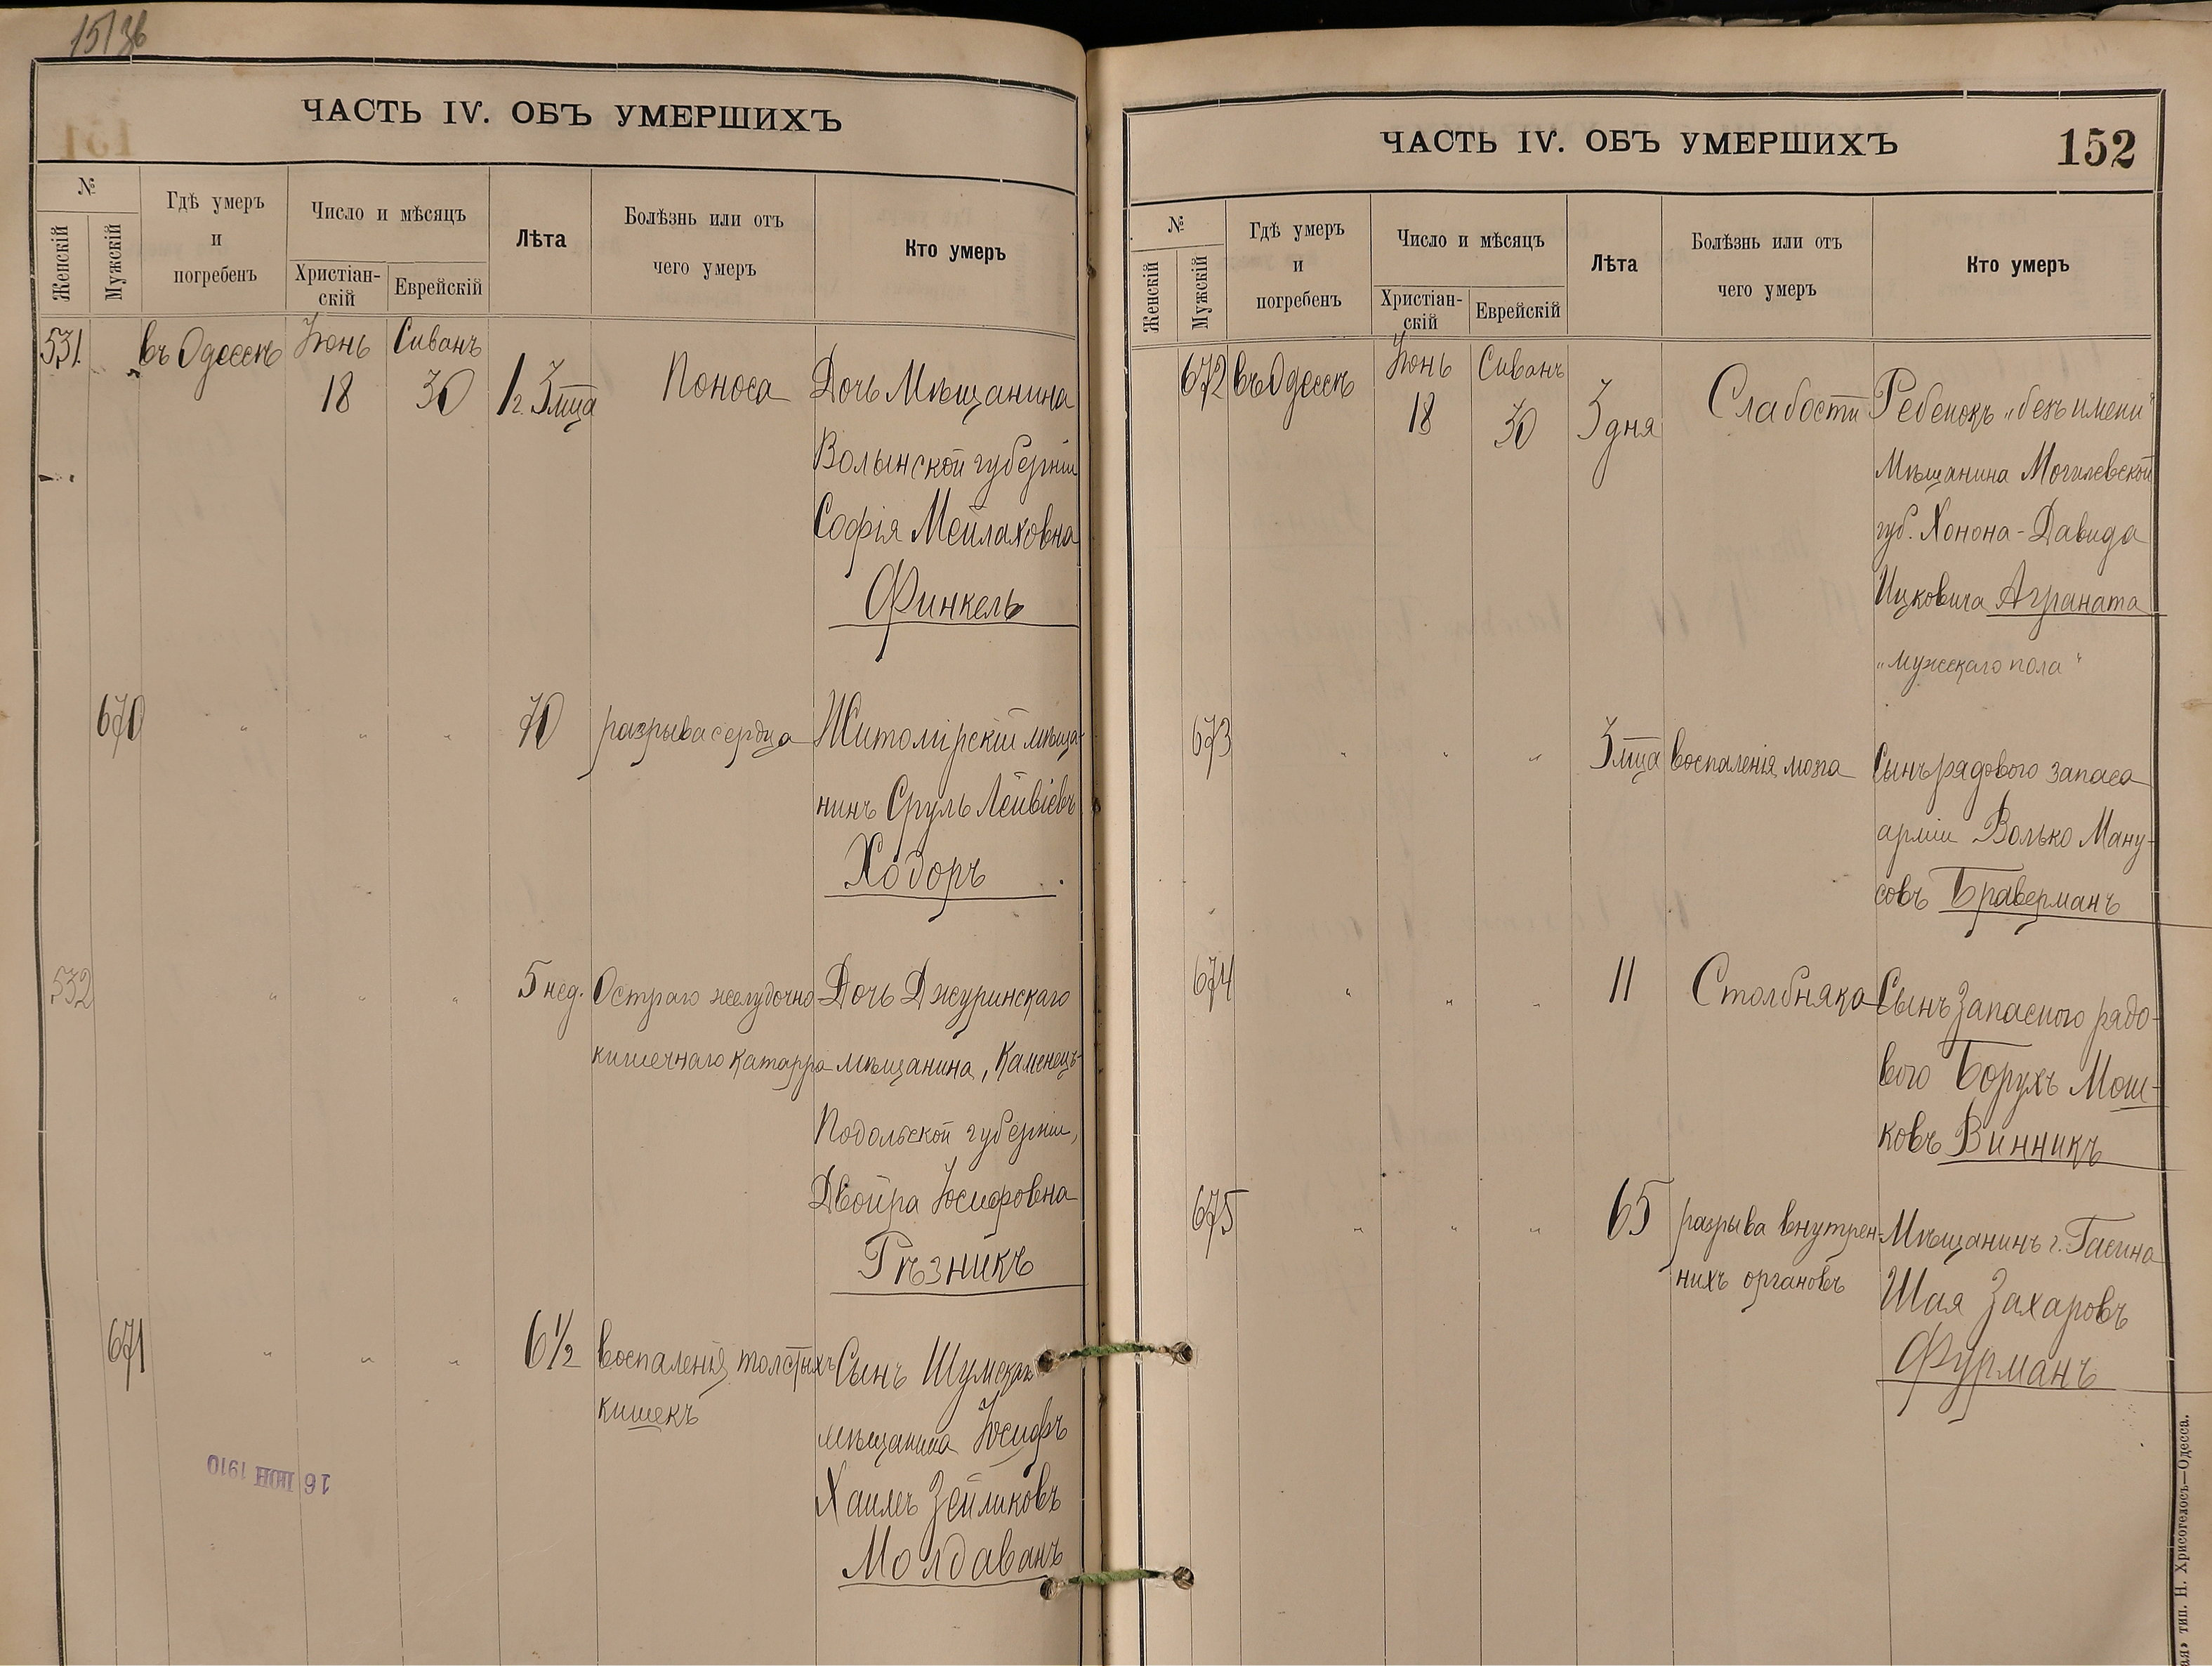 15136
ЧАСТЬ IV. ОБЪ УМЕРШИХЪ
№
Женскій
Мужскій
Гдѣ умеръ
и
погребенъ
Число и мѣсяцъ
Христіан-
скій
Еврейскій
Лѣта
Болѣзнь или отъ
чего умеръ
Кто умеръ
531. въ Одессѣ Іюнь Сиванъ
18 30 1 г. 3 мца Поноса Дочь Мѣщанина
Волынской губерніи
Софія Мейлаховна
Финкель
670 " " " 70 разрыва сердца Житомірскій мѣща-
нинъ Сруль Лейвіевъ
Ходоръ
532 " " " 5 нед. Остраго желудочно Дочь Джуринскаго
кишечнаго катарра мѣщанина, Каменецъ-
Подольской губерніи,
Двойра Іосифовна
Рѣзникъ
671 " " " 6 1/2 воспаленія толстыхъ Сынъ Шумскаго
кишекъ
мѣщанина Іосифъ
Хаимъ Зейликовъ
Молдаванъ
16 ІЮН 1910
ЧАСТЬ IV. ОБЪ УМЕРШИХЪ
152
№
Женскій
Мужскій
Гдѣ умеръ
и
погребенъ
Число и мѣсяцъ
Христіан-
скій
Еврейскій
Лѣта
Болѣзнь или отъ
чего умеръ
Кто умеръ
672 въ Одессѣ Іюнь Сиванъ
18 30 3 дня Слабости Ребенокъ „безъ имени"
Мѣщанина Могилевской
губ. Хонона-Давида
Ицковича Аграната
„мужскаго пола"
673 " " " 3 мца воспаленія мозга Сынъ рядового запаса
арміи Волько Ману-
совъ Браверманъ
674 " " " 11 Столбняка Сынъ Запасного рядо-
вого Борухъ Мош-
ковъ Винникъ
675 " " " 65 разрыва внутрен- Мѣщанинъ г. Гасина
нихъ органовъ
Шая Захаровъ
Фурманъ
тип. Н. Хрисогелосъ—Одесса.